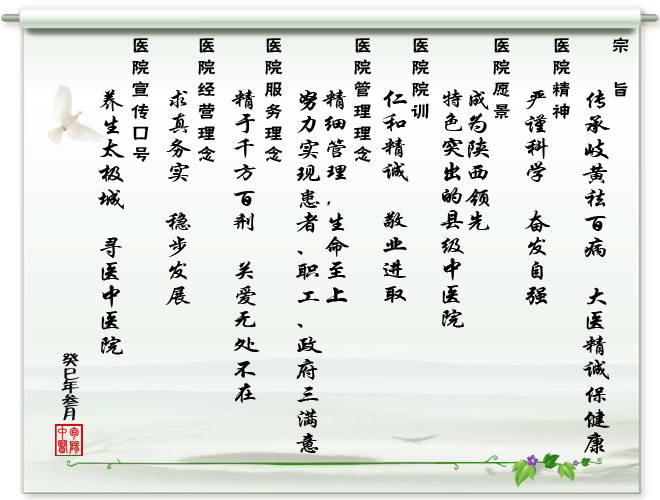 宗旨
传承岐黄祛百病 大医精诚保健康
医院精神
严谨科学 奋发自强
医院愿景
成为陕西领先
特色突出的县级中医院
医院院训
仁和精诚 敬业进取
医院管理理念
精细管理，生命至上
努力实现患者、职工、政府三满意
医院服务理念
精于千方百剂 关爱无处不在
医院经营理念
求真务实 稳步发展
医院宣传口号
养生太极城 寻医中医院
癸巳年叁月